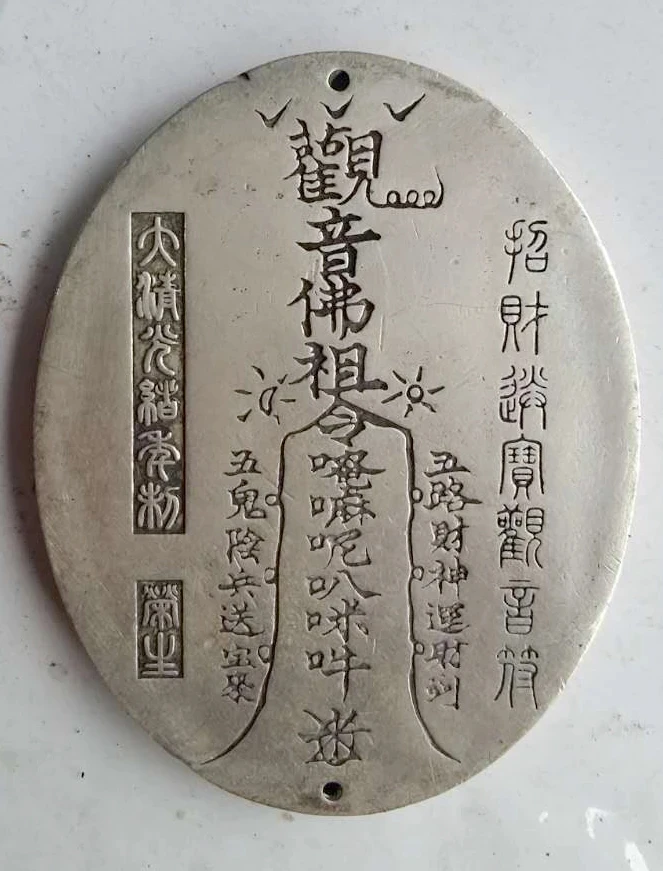 招財送寶觀音符
五路財神運財到
觀音佛祖令唵嘛呢叭咪吽
五鬼陰兵送宝來
大清光結年制
榮生